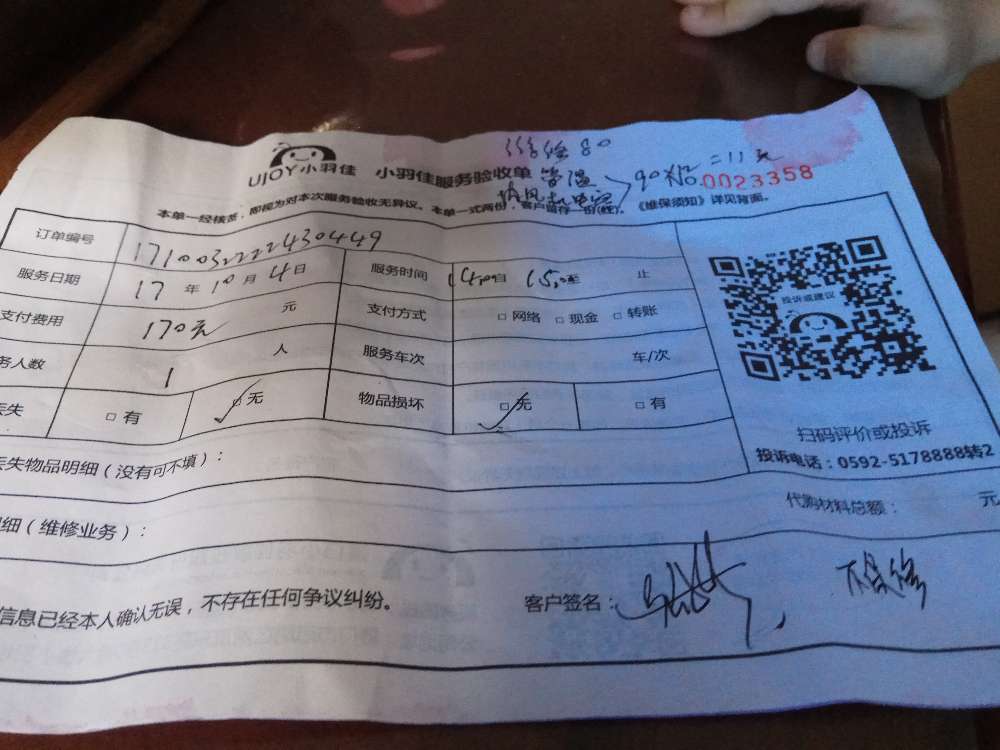 UJOY小羽佳 小羽佳服务验收单
90 = 11元
No.0023358
本单一经接签,即视为对本次服务验收无异议。本单一式两份,客户留存一份(联)。《维保须知》详见背面。
订单编号 171003222430449
服务日期 17年10月4日 服务时间 14:00自 15:00至 止
支付费用 170元 元 支付方式 □ 网络 □ 现金 □ 转账
务人数 1 人 服务车次 车/次
丢失 □ 有 □ 无 物品损坏 □ 无 □ 有
投诉或建议
扫码评价或投诉
投诉电话:0592-5178888转2
丢失物品明细(没有可不填):
代购材料总额: 元
细(维修业务):
信息已经本人确认无误,不存在任何争议纠纷。 客户签名: